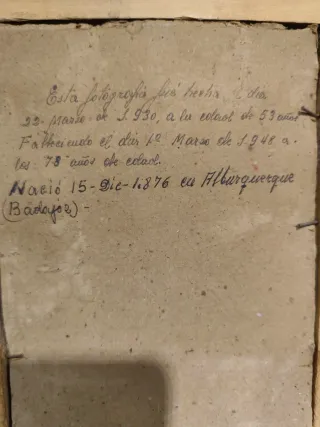 Esta fotografía fué hecha el dia
22-Marzo de 1.930, a la edad de 53 años
Falleciendo el día 1º Marzo de 1.948 a
los 73 años de edad.
Nació 15-Dic-1.876 en Alburquerque
(Badajoz) -